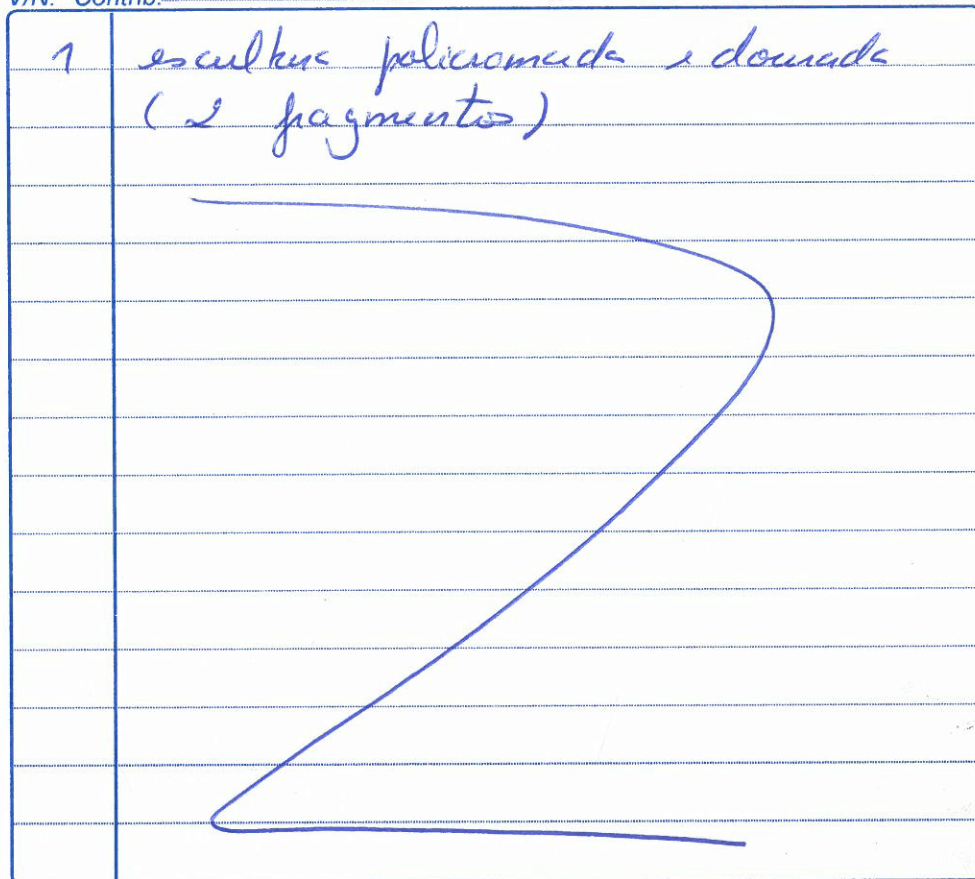 V/N.º Contrib.
1 escultura policromada e dourada
(2 fragmentos)